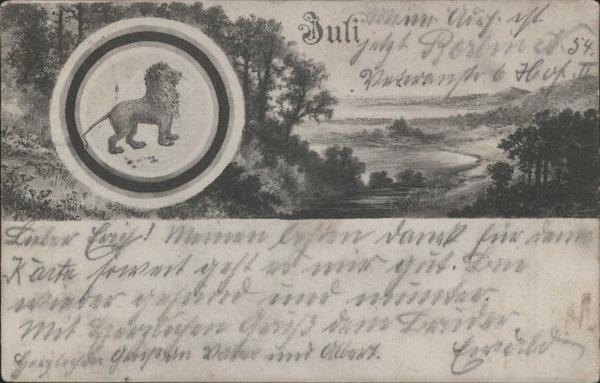 Juli
Meine Adr. ist
jetzt 54.
Veteranstr 6 Hof II
Lieber Erich! Meinen besten Dank für deine
Karte soweit geht es mir gut. Bin
wieder gesund und munter.
Mit Herzlichen Gruß dein Bruder
Herzlichen Gruß an Vater und Albert. Ewald